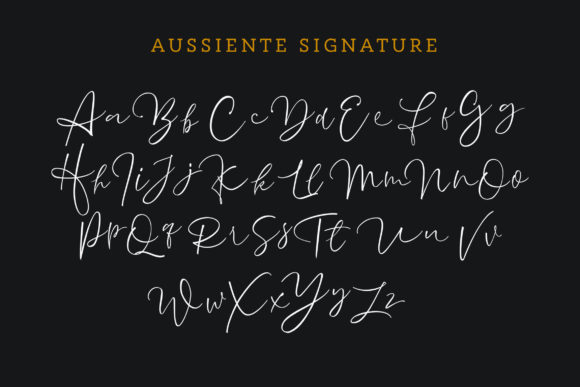 AUSSIENTE SIGNATURE
Aa Bb Cc Dd Ee Ff Gg
Hh Ii Jj Kk Ll Mm Nn Oo
Pp Qq Rr Ss Tt Uu Vv
Ww Xx Yy Zz